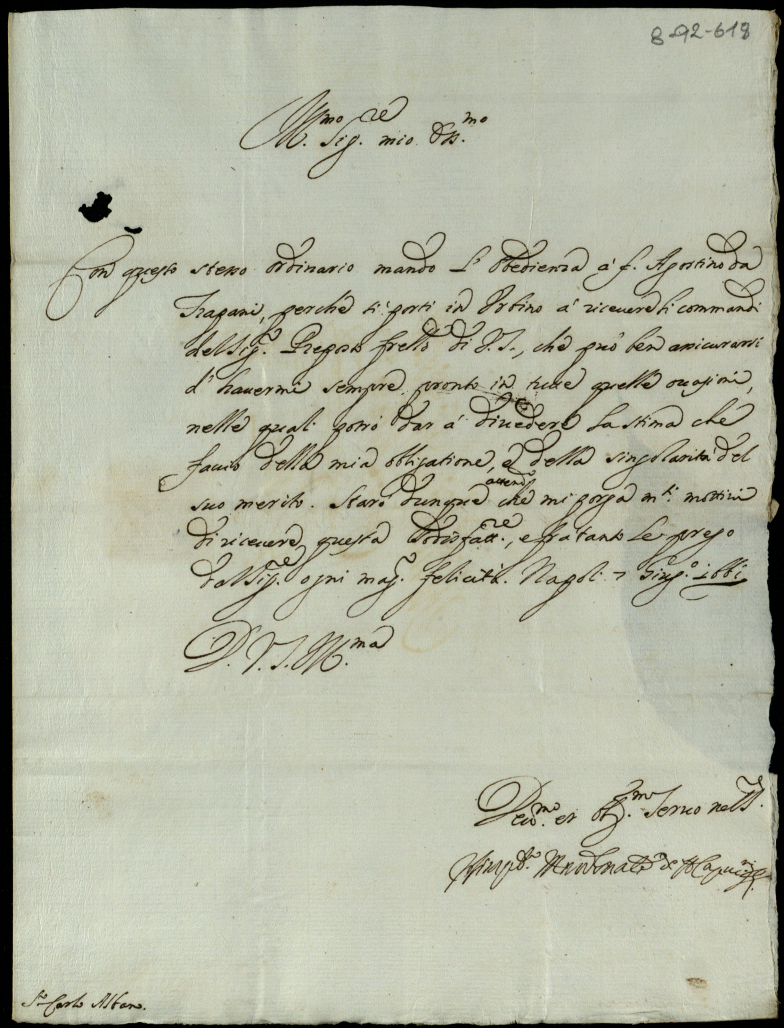 8-92-618
Ill.mo Sig.re mio Oss.mo
Con questo stesso ordinario mando l'obedienza à f. Agostino da
Trapani, perche si porti in Urbino à ricevere li commandi
del Sig.r Preposto frello di V.S., che può ben assicurarsi
d'havermi sempre pronto in tutte quelle occasioni,
nelle quali potrò dar à divedere la stima che
faccio della mia obligatione, e della singolarità del
suo merito. Starò dunque attend.o che mi porga m.ti motivi
di ricevere questa sodisfatt.ne, e frà tanto le prego
dal Sig.re ogni mag. felicità. Napoli 7 Giug.o 1661
D. V. S. Ill.ma
Devo.mo et obl.mo Servo nel S.
de Capuccini
S.r Carlo Albano.